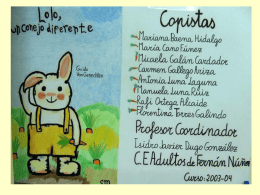 Lolo,
un conejo diferente
cm
Copistas
Mariana Baena Hidalgo
María Cano Fúnez
Micaela Galán Cardador
Carmen Gallego Ariza
Antonia Luna Laguna
Manuela Luna Ruiz
Rafi Ortega Alcaide
Florentina Torres Galindo
Profesor Cordinador
Isidro Javier Dugo González
C.E Adultos de Fernán Núñez
Curso: 2003-04